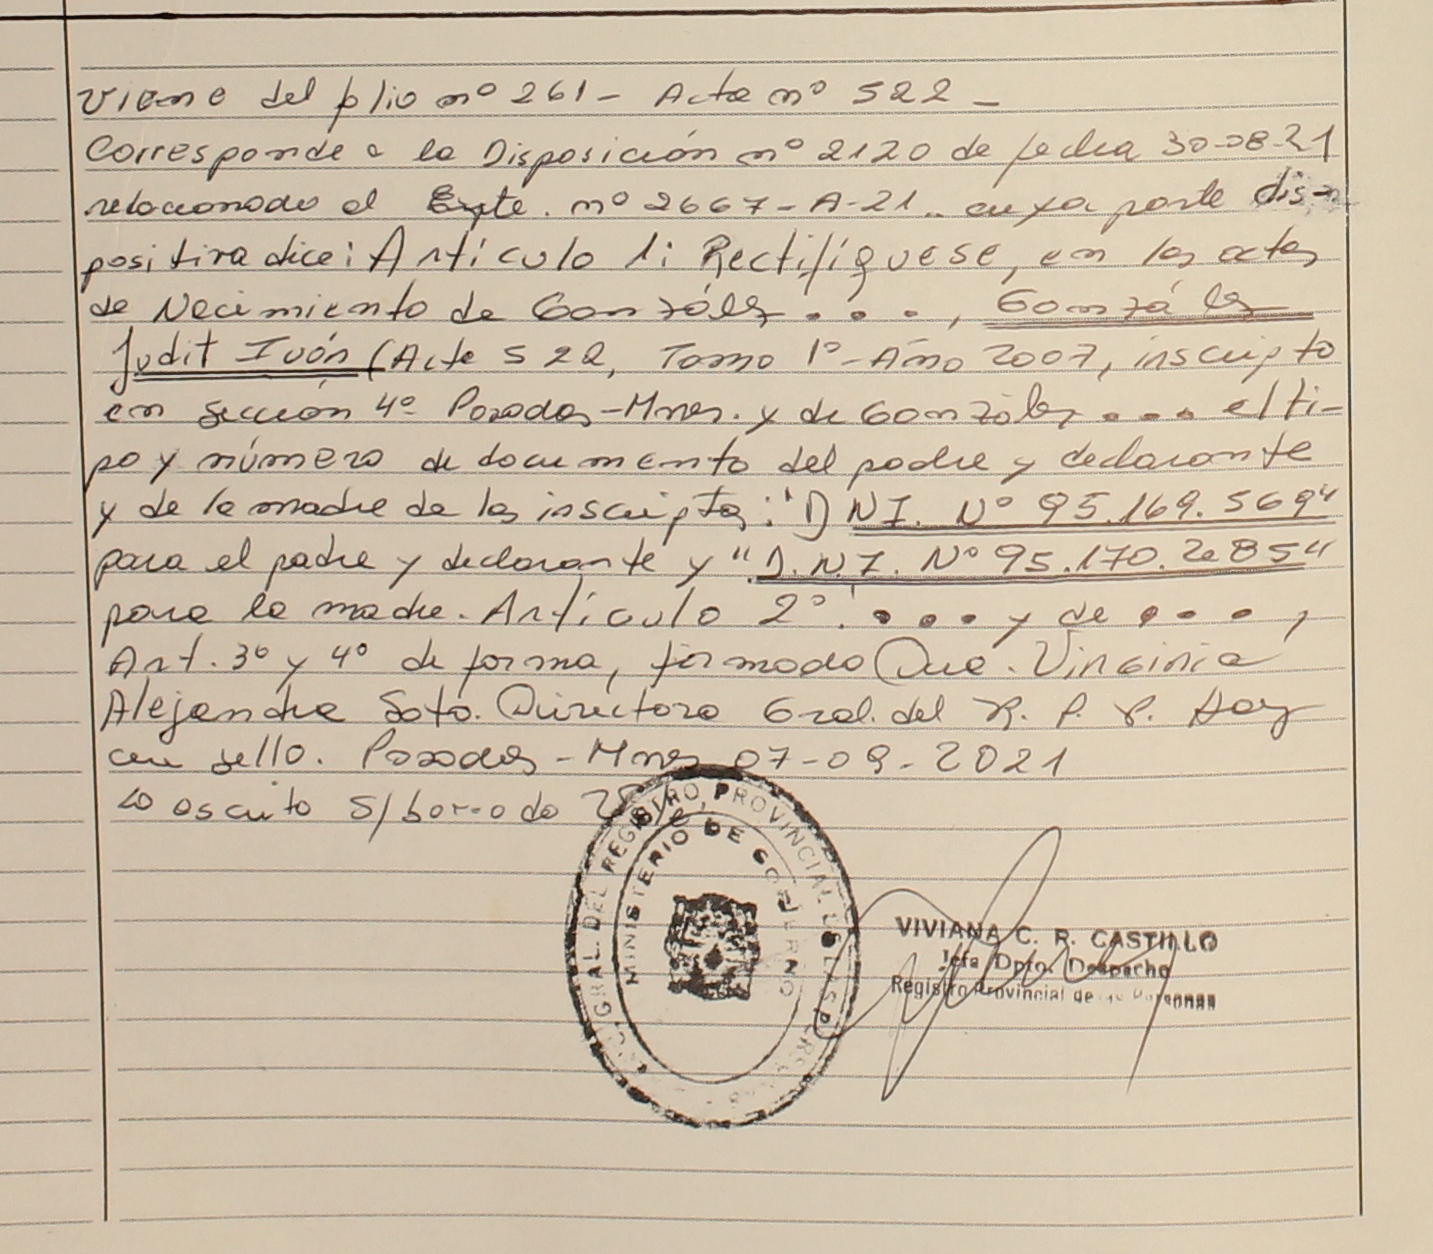 Viene del folio nº 261 - Acta nº 522 -
Corresponde a la Disposición nº 2120 de fecha 30-08-21
relacionado al Expte. nº 2667-A-21.. cuya parte dis-
positiva dice: Artículo 1: Rectifíquese, en las actas
de Nacimiento de González . . . , González
Judit Ivón (Acta 522, Tomo 1º - Año 2007, inscripto
en Sección 4º Posadas - Mnes. y de González . . . el ti-
po y número de documento del padre y declarante
y de la madre de las inscriptas: "DNI. Nº 95.169.569"
para el padre y declarante y "D.N.I. Nº 95.170.285"
para la madre. Artículo 2º. . . . y de . . . ,
Art. 3º y 4º de forma, firmado Dra. Virginia
Alejandra Soto. Directora Gral. del R. P. P. Hay
un sello. Posadas - Mnes 07-09-2021
Lo escrito s/borrado
GRAL. DEL REGISTRO PROVINCIAL DE LAS PERSONAS
MINISTERIO DE GOBIERNO
VIVIANA C. R. CASTILLO
Jefa Dpto. Despacho
Registro Provincial de las Personas